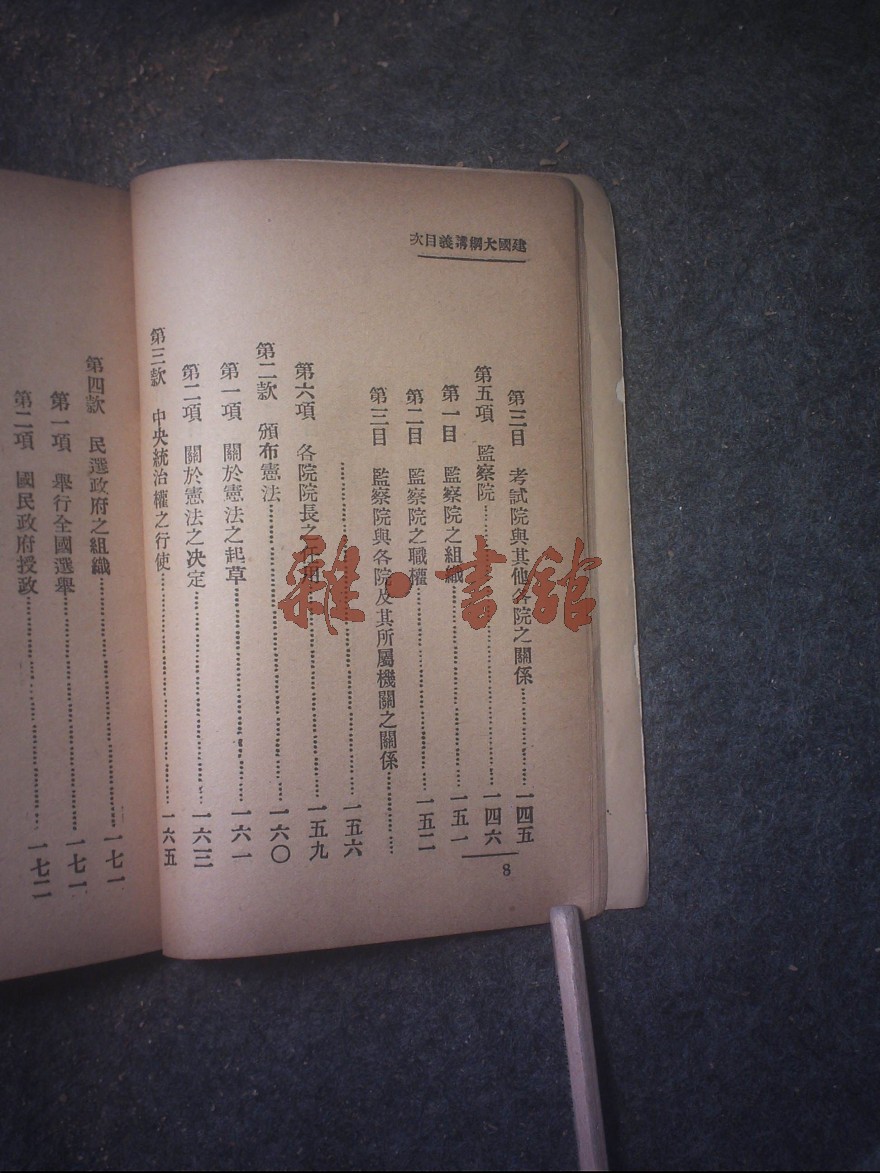 建國大綱講義目次
第三目 考試院與其他各院之關係……一四五
第五項 監察院……一四六
第一目 監察院之組織……一五一
第二目 監察院之職權……一五二
第三目 監察院與各院及其所屬機關之關係……
……一五六
第六項 各院院長之……一五九
第二款 頒布憲法……一六〇
第一項 關於憲法之起草……一六一
第二項 關於憲法之決定……一六三
第三款 中央統治權之行使……一六五
8
第四款 民選政府之組織……一七一
第一項 舉行全國選舉……一七一
第二項 國民政府授政……一七二
雜·書館